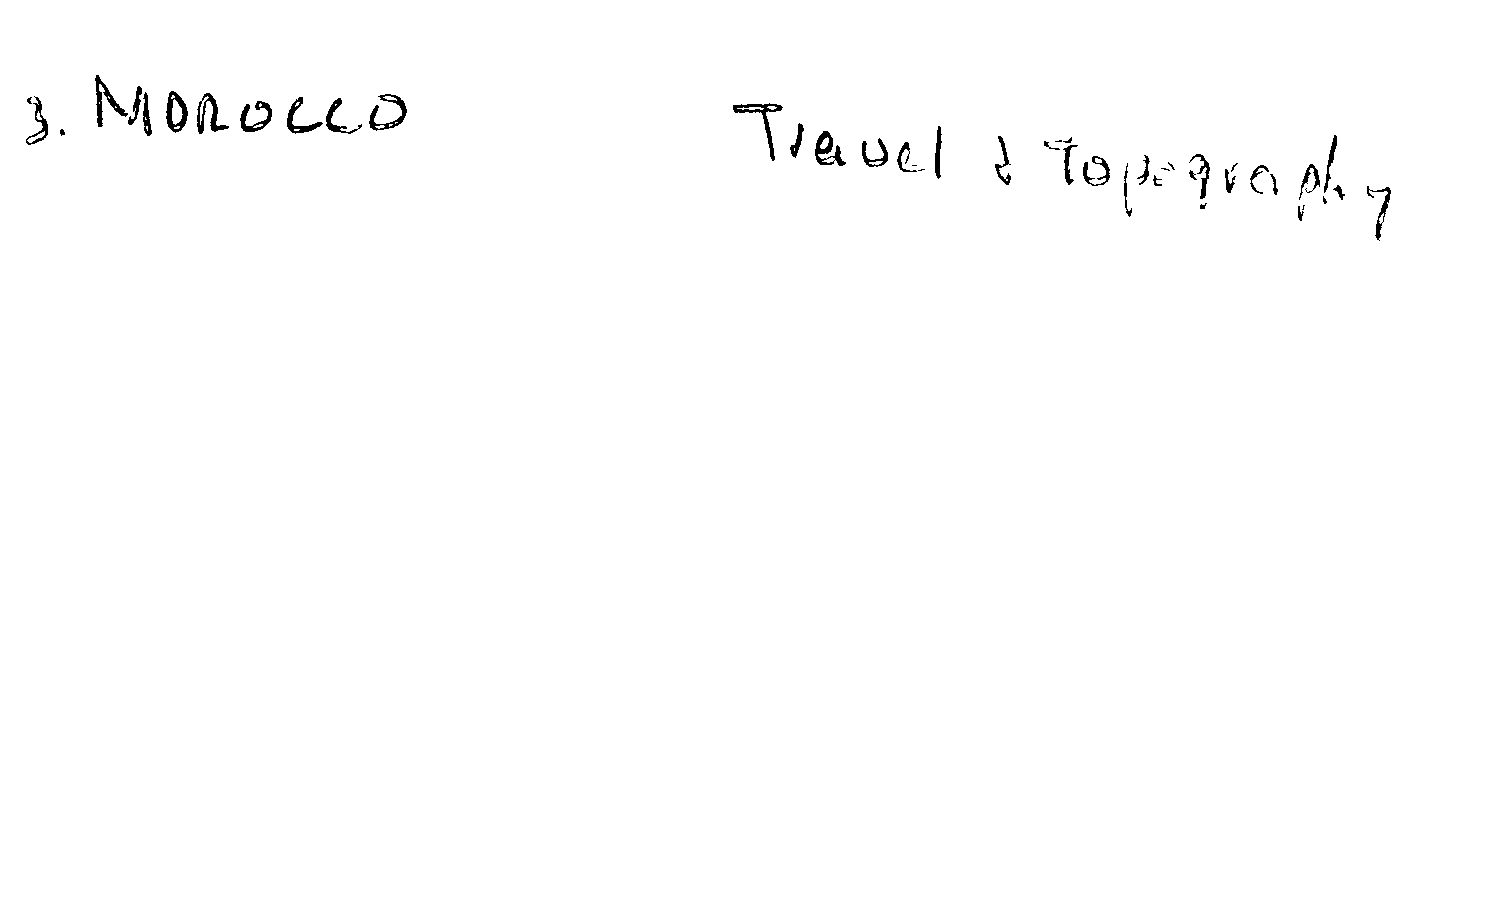 3. MOROCCO
Travel & Topography